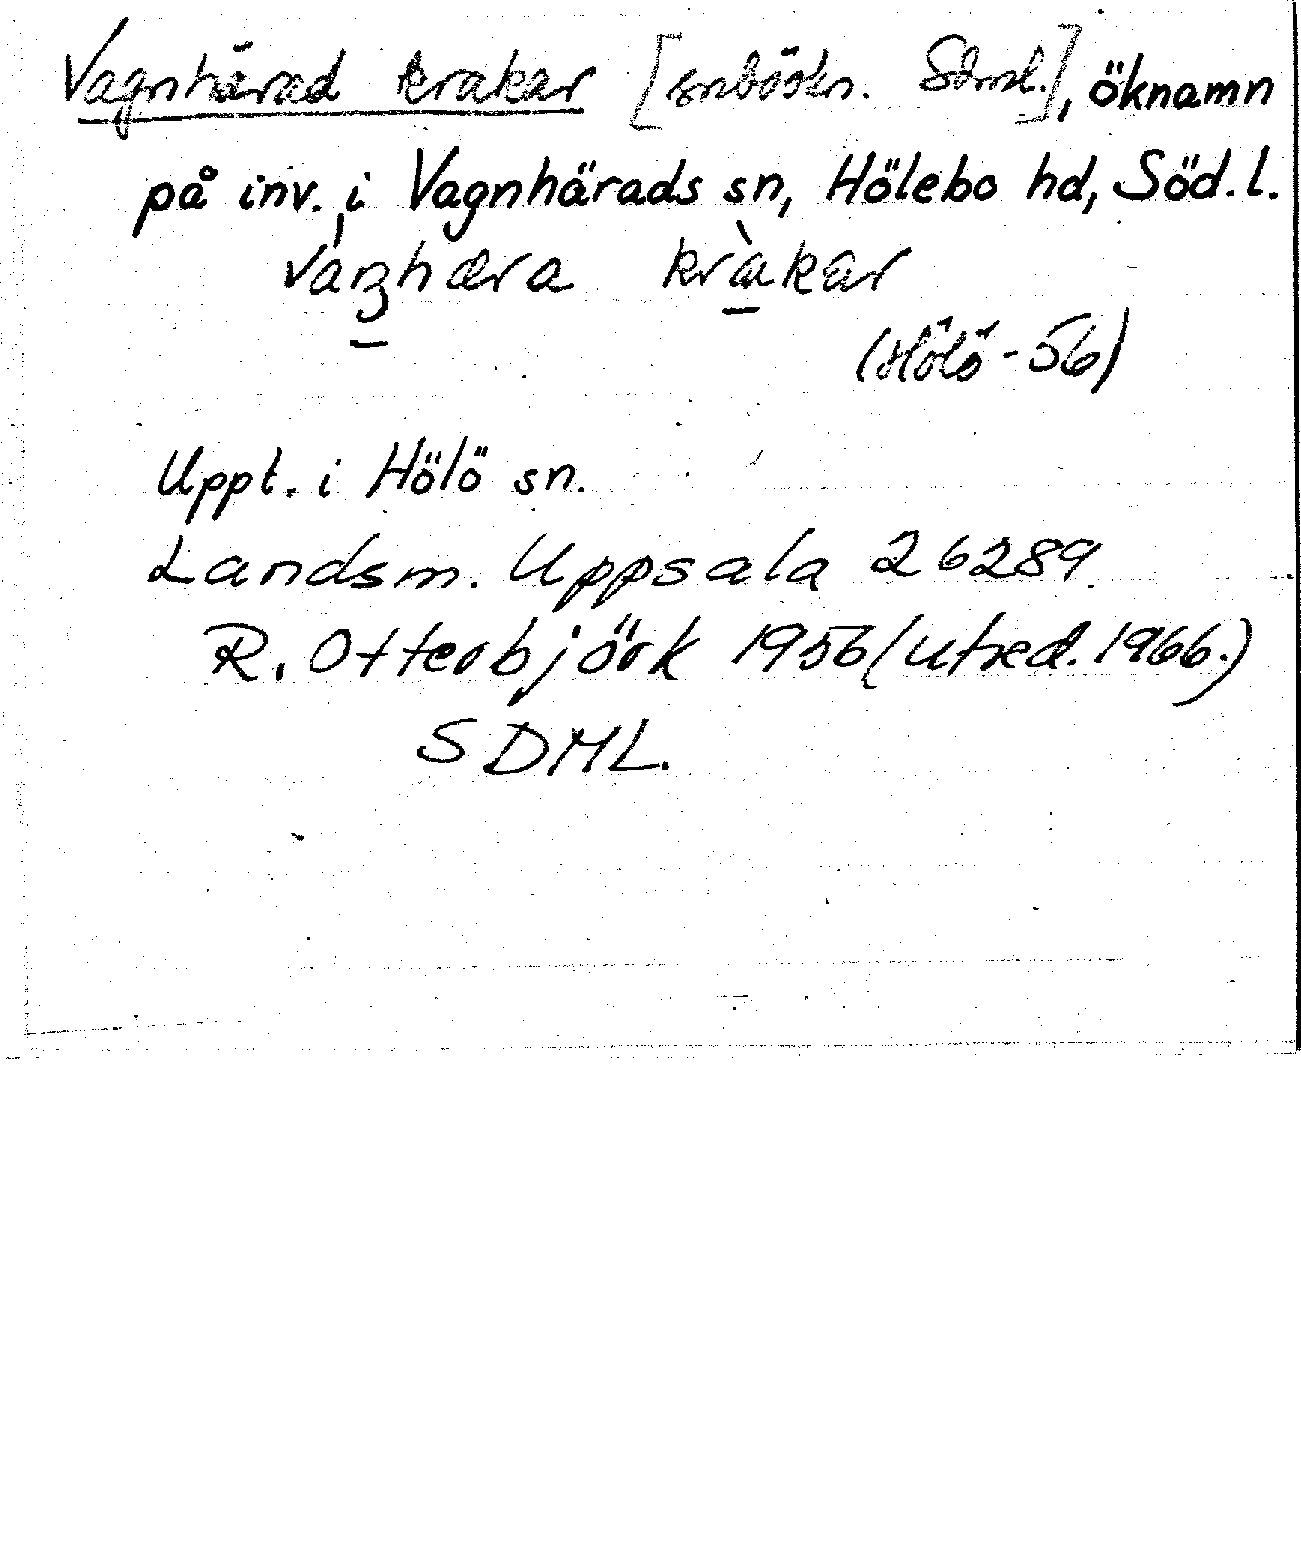 Vagnhärad krakar [snböökn. Sdml.], öknamn
på inv. i Vagnhärads sn, Hölebo hd, Söd.l.
kràkar
(Hölö -56)
Uppt. i Hölö sn.
Landsm. Uppsala 26289.
R. Otterbjörk 1956 (utred. 1966.)
SDML.